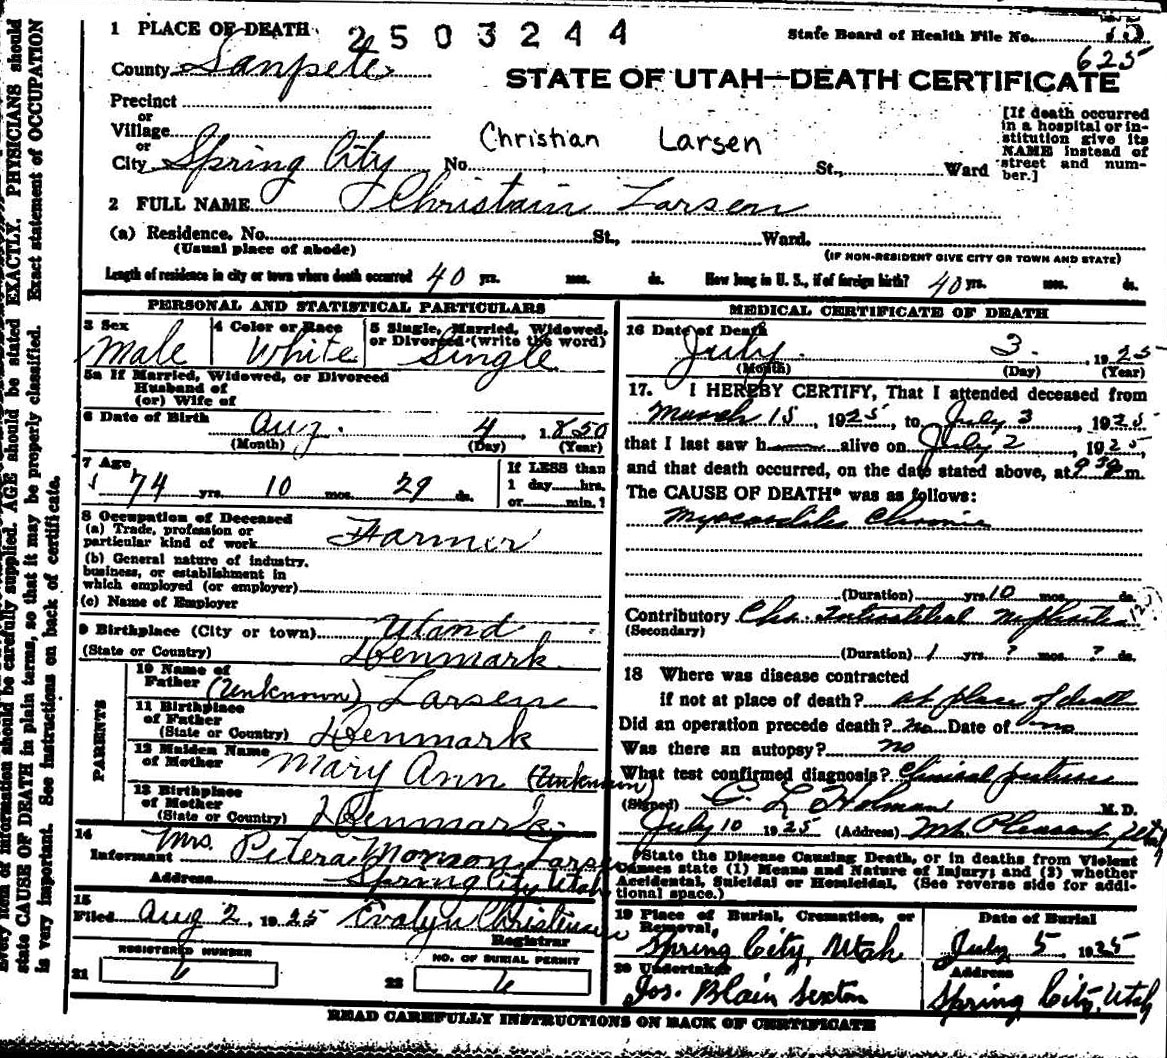 1 PLACE OF DEATH 2503244
State Board of Health File No. 
625
County Sanpete
STATE OF UTAH—DEATH CERTIFICATE
Precinct
or
Village
or
City Spring City No. St., Ward
Christian Larsen
[If death occurred in a hospital or in-
stitution give its
NAME instead of
street and num-
ber.]
2 FULL NAME Christain Larsen
(a) Residence, No. St., Ward.
(Usual place of abode)
(IF NON-RESIDENT GIVE CITY OR TOWN AND STATE)
Length of residence in city or town where death occurred 40 yrs. mos. ds. How long in U. S., if of foreign birth? 40 yrs. mos. ds.
PERSONAL AND STATISTICAL PARTICULARS
3 Sex Male
4 Color or Race White
5 Single, Married, Widowed,
or Divorced (write the word)
Single
5a If Married, Widowed, or Divorced
Husband of
(or) Wife of
6 Date of Birth Aug. 4, 1850
(Month) (Day) (Year)
7 Age
74 yrs. 10 mos. 29 ds.
If LESS than
1 day hrs.
or min.?
8 Occupation of Deceased
(a) Trade, profession or
particular kind of work Farmer
(b) General nature of industry,
business, or establishment in
which employed (or employer)
(c) Name of Employer
9 Birthplace (City or town) Utand
(State or Country) Denmark
PARENTS
10 Name of
Father (Unknown) Larsen
11 Birthplace
of Father
(State or Country) Denmark
12 Maiden Name
of Mother Mary Ann (Unknown)
13 Birthplace
of Mother
(State or Country) Denmark
14
Informant Mrs. Petera Monson Larsen
Address Spring City Utah
15
Filed Aug 2, 1925 Evalyn Christensen
Registrar
REGISTERED NUMBER
21 6
NO. OF BURIAL PERMIT
22 6
MEDICAL CERTIFICATE OF DEATH
16 Date of Death
July 3, 1925
(Month) (Day) (Year)
17. I HEREBY CERTIFY, That I attended deceased from
March 15, 1925, to July 3, 1925
that I last saw h alive on July 2, 1925,
and that death occurred, on the date stated above, at 9 m.
The CAUSE OF DEATH* was as follows:
Myocarditis Chronic
(Duration) yrs. 10 mos. ds.
Contributory Chr. Interstitial Nephritis
(Secondary)
(Duration) 1 yrs. ? mos. ? ds.
18 Where was disease contracted
if not at place of death? at place of death
Did an operation precede death? no Date of no
Was there an autopsy? no
What test confirmed diagnosis? Clinical pictures
(Signed) C. L. Holman M. D.
July 10 1925 (Address) Mt. Pleasant, Utah
*State the Disease Causing Death, or in deaths from Violent
Causes state (1) Means and Nature of Injury; and (2) whether
Accidental, Suicidal or Homicidal. (See reverse side for addi-
tional space.)
19 Place of Burial, Cremation, or
Removal,
Spring City, Utah
Date of Burial
July 5 1925
20 Undertaker
Jos. Blain Sexton
Address
Spring City, Utah
READ CAREFULLY INSTRUCTIONS ON BACK OF CERTIFICATE
Every item of information should be carefully supplied. AGE should be stated EXACTLY. PHYSICIANS should
state CAUSE OF DEATH in plain terms, so that it may be properly classified. Exact statement of OCCUPATION
is very important. See instructions on back of certificate.